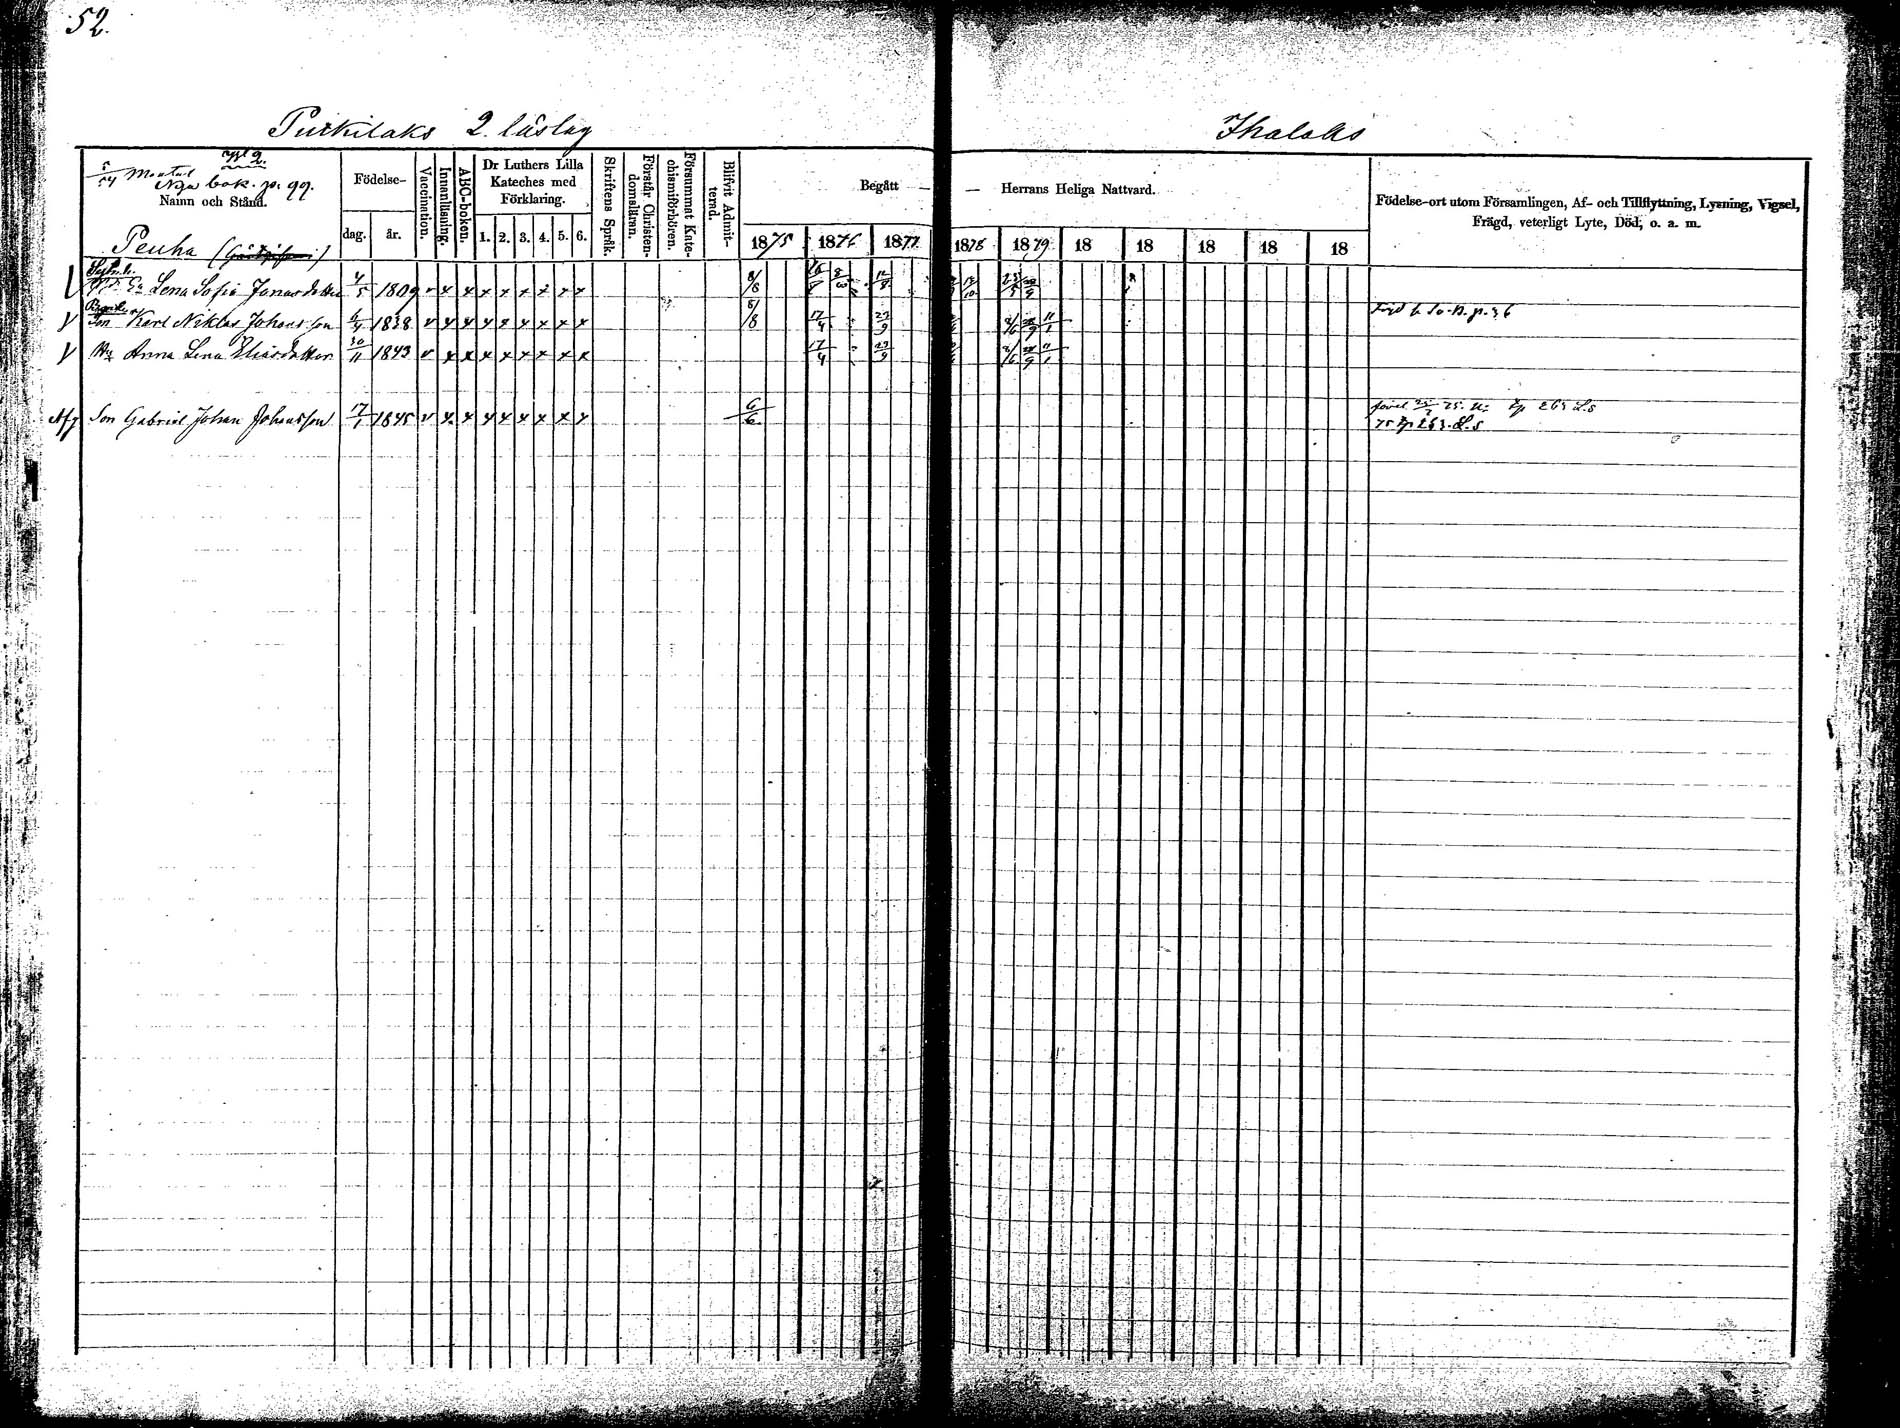 52.
Purkilaks 2. läslag
Ihalaks
№ 2.
5/54 Mantal
Nya bok. p. 99.
Namn och Stånd.
Födelse-
dag. år.
Vaccination.
Innanläsning.
ABC-boken.
Dr Luthers Lilla
Kateches med
Förklaring.
1. 2. 3. 4. 5. 6.
Skriftens Språk.
Förstår Christen-
domsläran.
Försummat Kate-
chismiförhören.
Blifvit Admit-
terad.
Begått — — Herrans Heliga Nattvard.
1875 1876 1877 1878 1879 18 18 18 18 18
Födelse-ort utom Församlingen, Af- och Tillflyttning, Lysning, Vigsel,
Frägd, veterligt Lyte, Död, o. a. m.
Peuha
Lena Sofia Jonasdotter 4/5 1809 v x x x x x x x x 8/8
Son Karl Niklas Johansson 6/4 1838 v x x x x x x x x 8/8 17/4 23/9
Anna Lena Eliasdotter 30/11 1843 v x x x x x x x x 17/4 23/9
Afg Son Gabriel Johan Johansson 17/1 1845 v x x x x x x x x 6/6
75 p 263. L. s